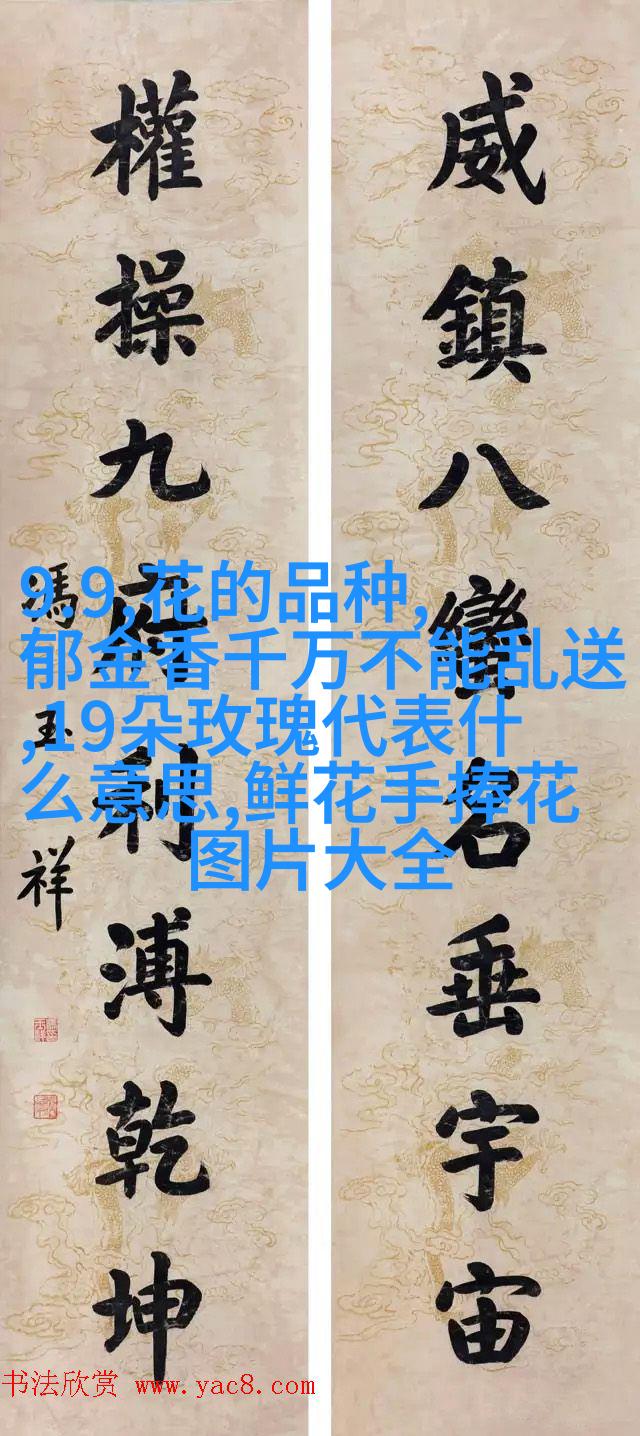 威鎮八蠻名垂宇宙
權操九府利溥乾坤
馮玉祥
9.9,花的品种,
郁金香千万不能乱送
,19朵玫瑰代表什
么意思,鲜花手捧花
图片大全
书法欣赏 www.yac8.com